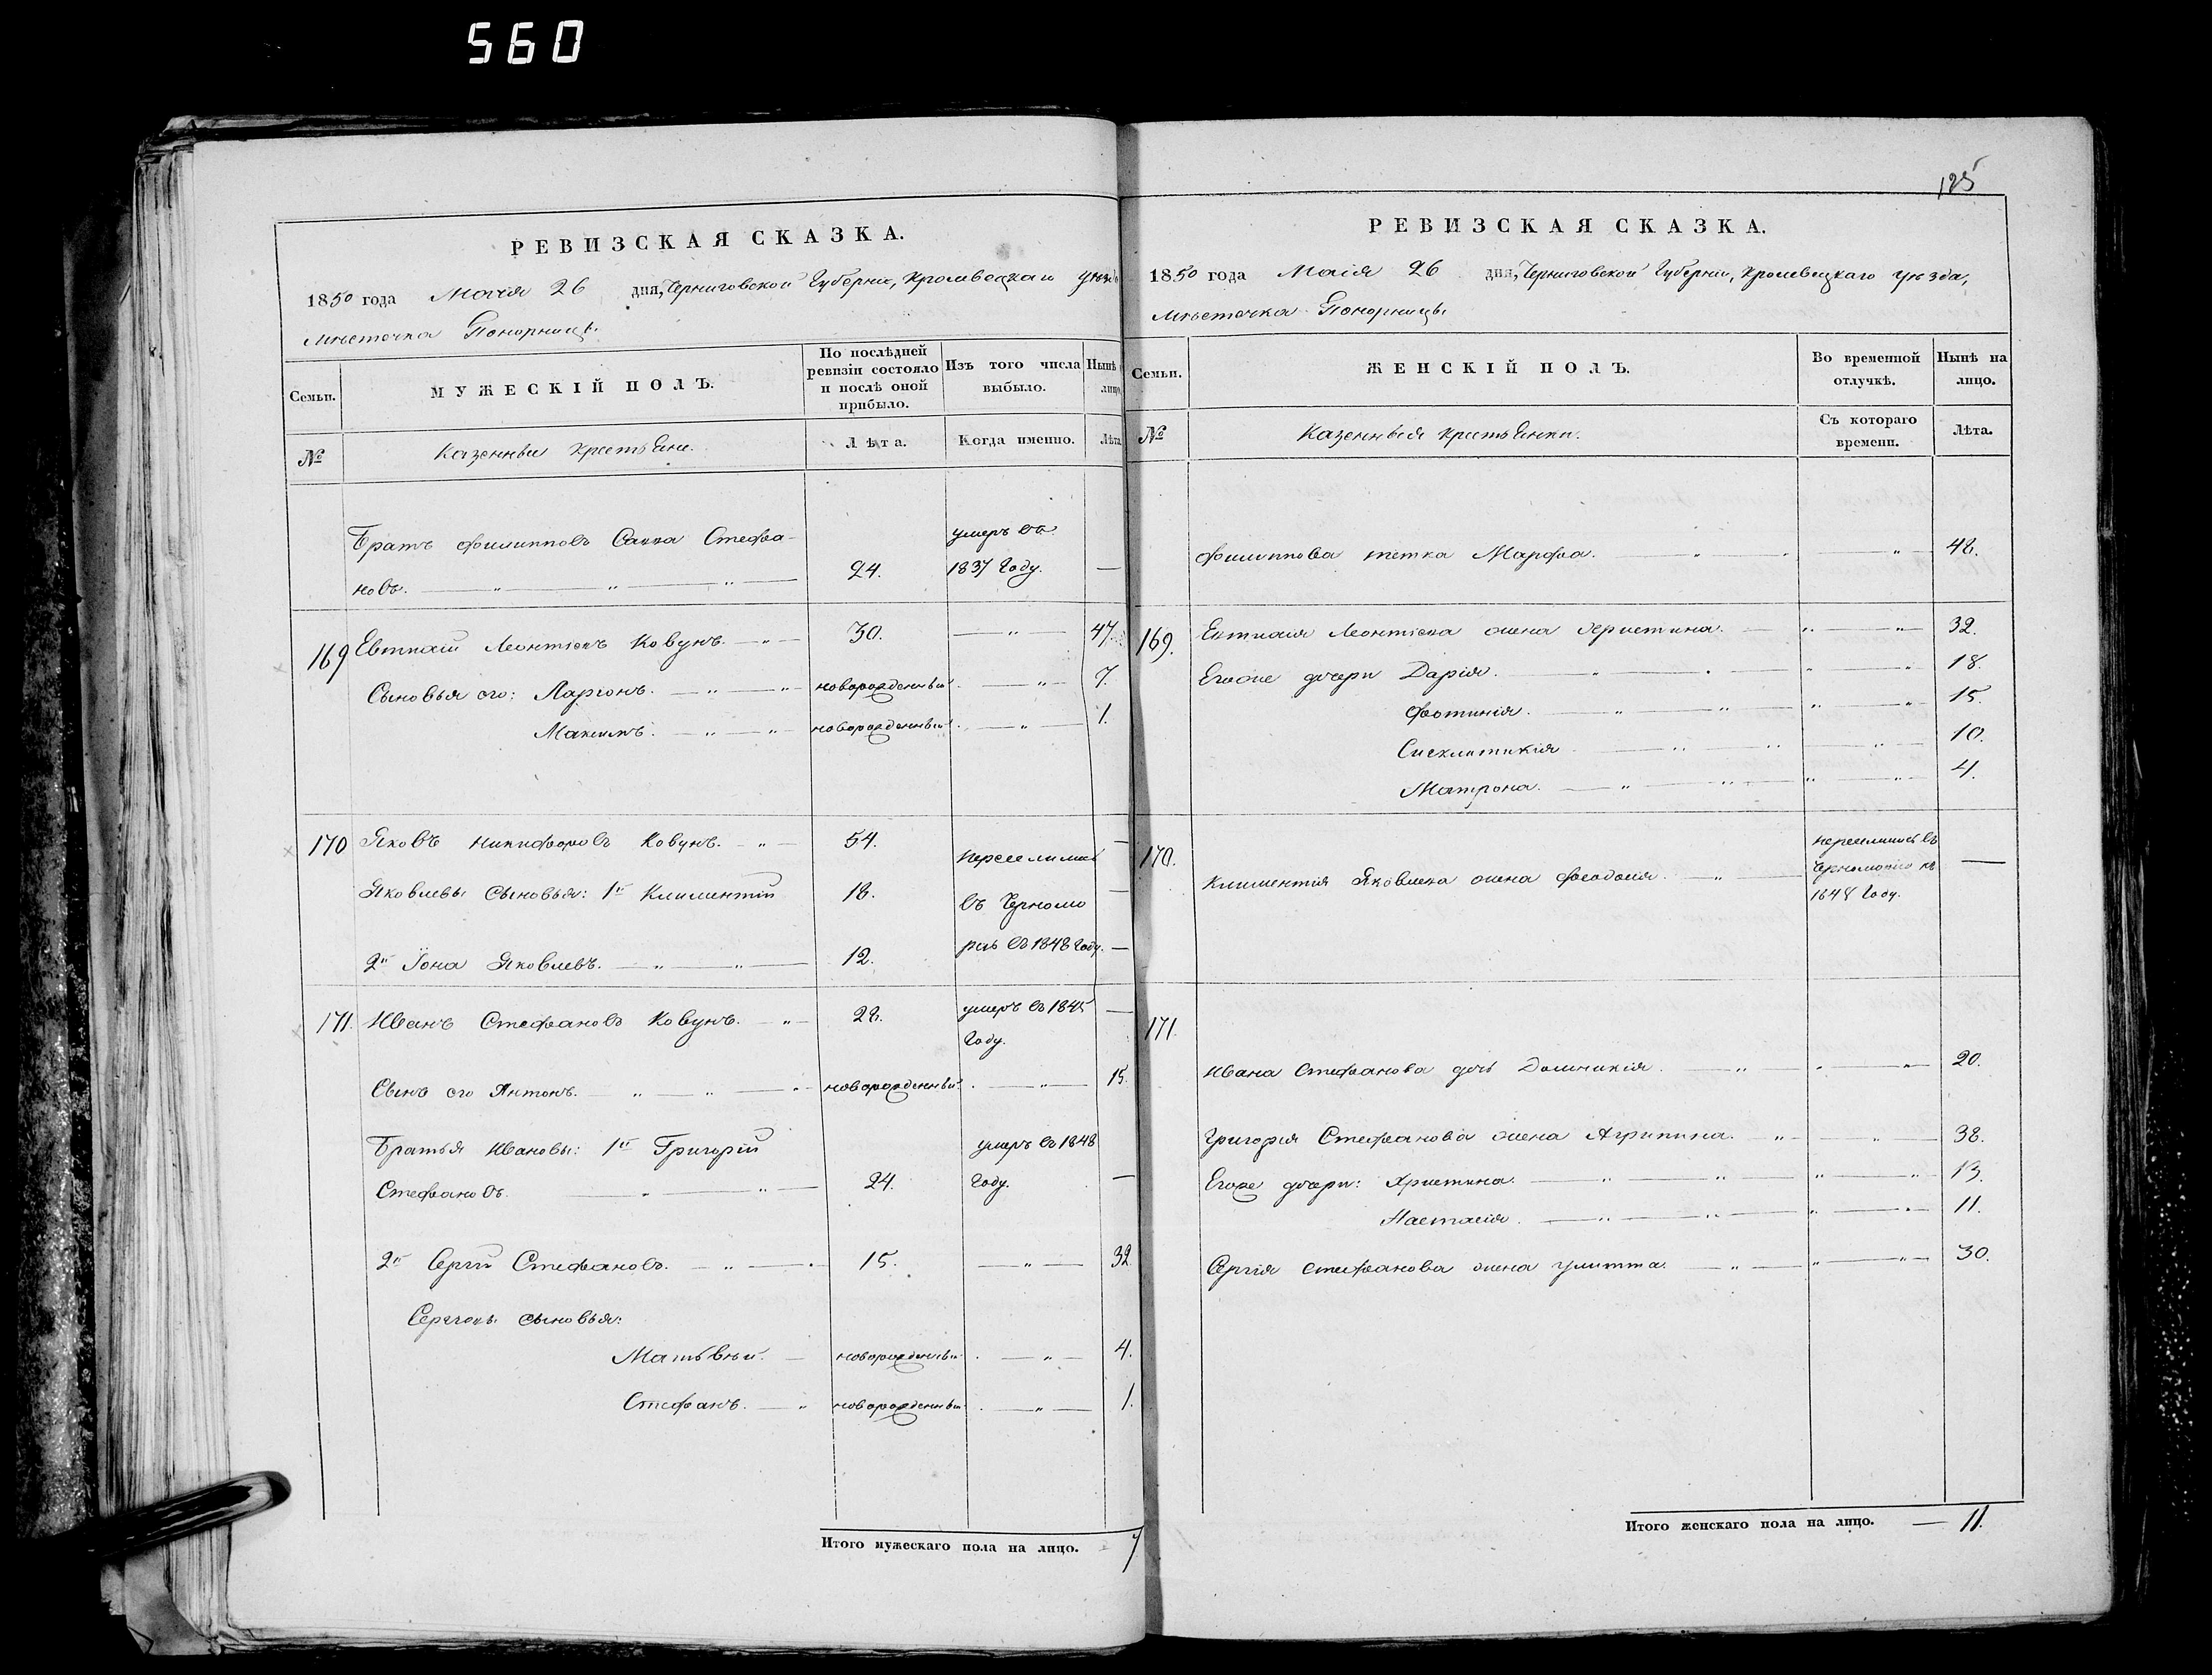 560
РЕВИЗСКАЯ СКАЗКА.
1850 года Маія 26 дня, Черниговской Губерніи, Кролевецкаго уѣзда
мѣстечка Понорницы.
Семьи.
МУЖЕСКІЙ ПОЛЪ.
По послѣдней ревизіи состояло и послѣ оной прибыло.
Изъ того числа выбыло.
Нынѣ лицо
№
Казенныи крестьяне.
Лѣта.
Когда именно.
Лѣта
Братъ Филипповъ Савва Стефа-
новъ. 24. умеръ въ 1837 Году. —
169 Евтихій Леонтіевъ Ковунъ. 30. 47.
Сыновья его: Ларіонъ. новорожденный. 7.
Максимъ. новорожденный. 1.
170 Яковъ Никифоровъ Ковунъ. 54. переселились —
Яковлевы сыновья: 1й Климентій 18. въ Черномо —
2й Іона Яковлевъ. 12. рія въ 1848 Году. —
171. Иванъ Стефановъ Ковунъ. 28. умеръ въ 1845 Году. —
Сынъ его Антонъ. новорожденный. 15.
Братья Ивановы: 1й Григорій умеръ въ 1848
Стефановъ. 24. Году. —
2й Сергій Стефановъ. 15. 32
Сергіевы сыновья:
Матьвѣй. новорожденный. 4.
Стефанъ. новорожденный. 1.
Итого мужескаго пола на лицо. 7
125
РЕВИЗСКАЯ СКАЗКА.
1850 года Маія 26 дня, Черниговской Губерніи, Кролевецкаго уѣзда,
мѣстечка Понорницы.
Семьи.
ЖЕНСКІЙ ПОЛЪ.
Во временной отлучкѣ.
Нынѣ на лицо.
№
Казенныя крестьянки.
Съ котораго времени.
Лѣта.
Филиппова тетка Марфа. 48.
169. Евтихія Леонтіева жена Христина. 32.
Егоже дочери Дарія. 18.
Фотинія. 15.
Сиклитикія 10.
Матрона. 4.
170. Климентія Яковлева жена Феодосія. переселились въ Черноморію въ 1848 Году. —
171.
Ивана Стефанова дочь Домникія. 20.
Григорія Стефанова жена Агрипина. 38.
Егоже дочери: Христина. 13.
Настасія. 11.
Сергія Стефанова жена Улитта. 30.
Итого женскаго пола на лицо. — 11.